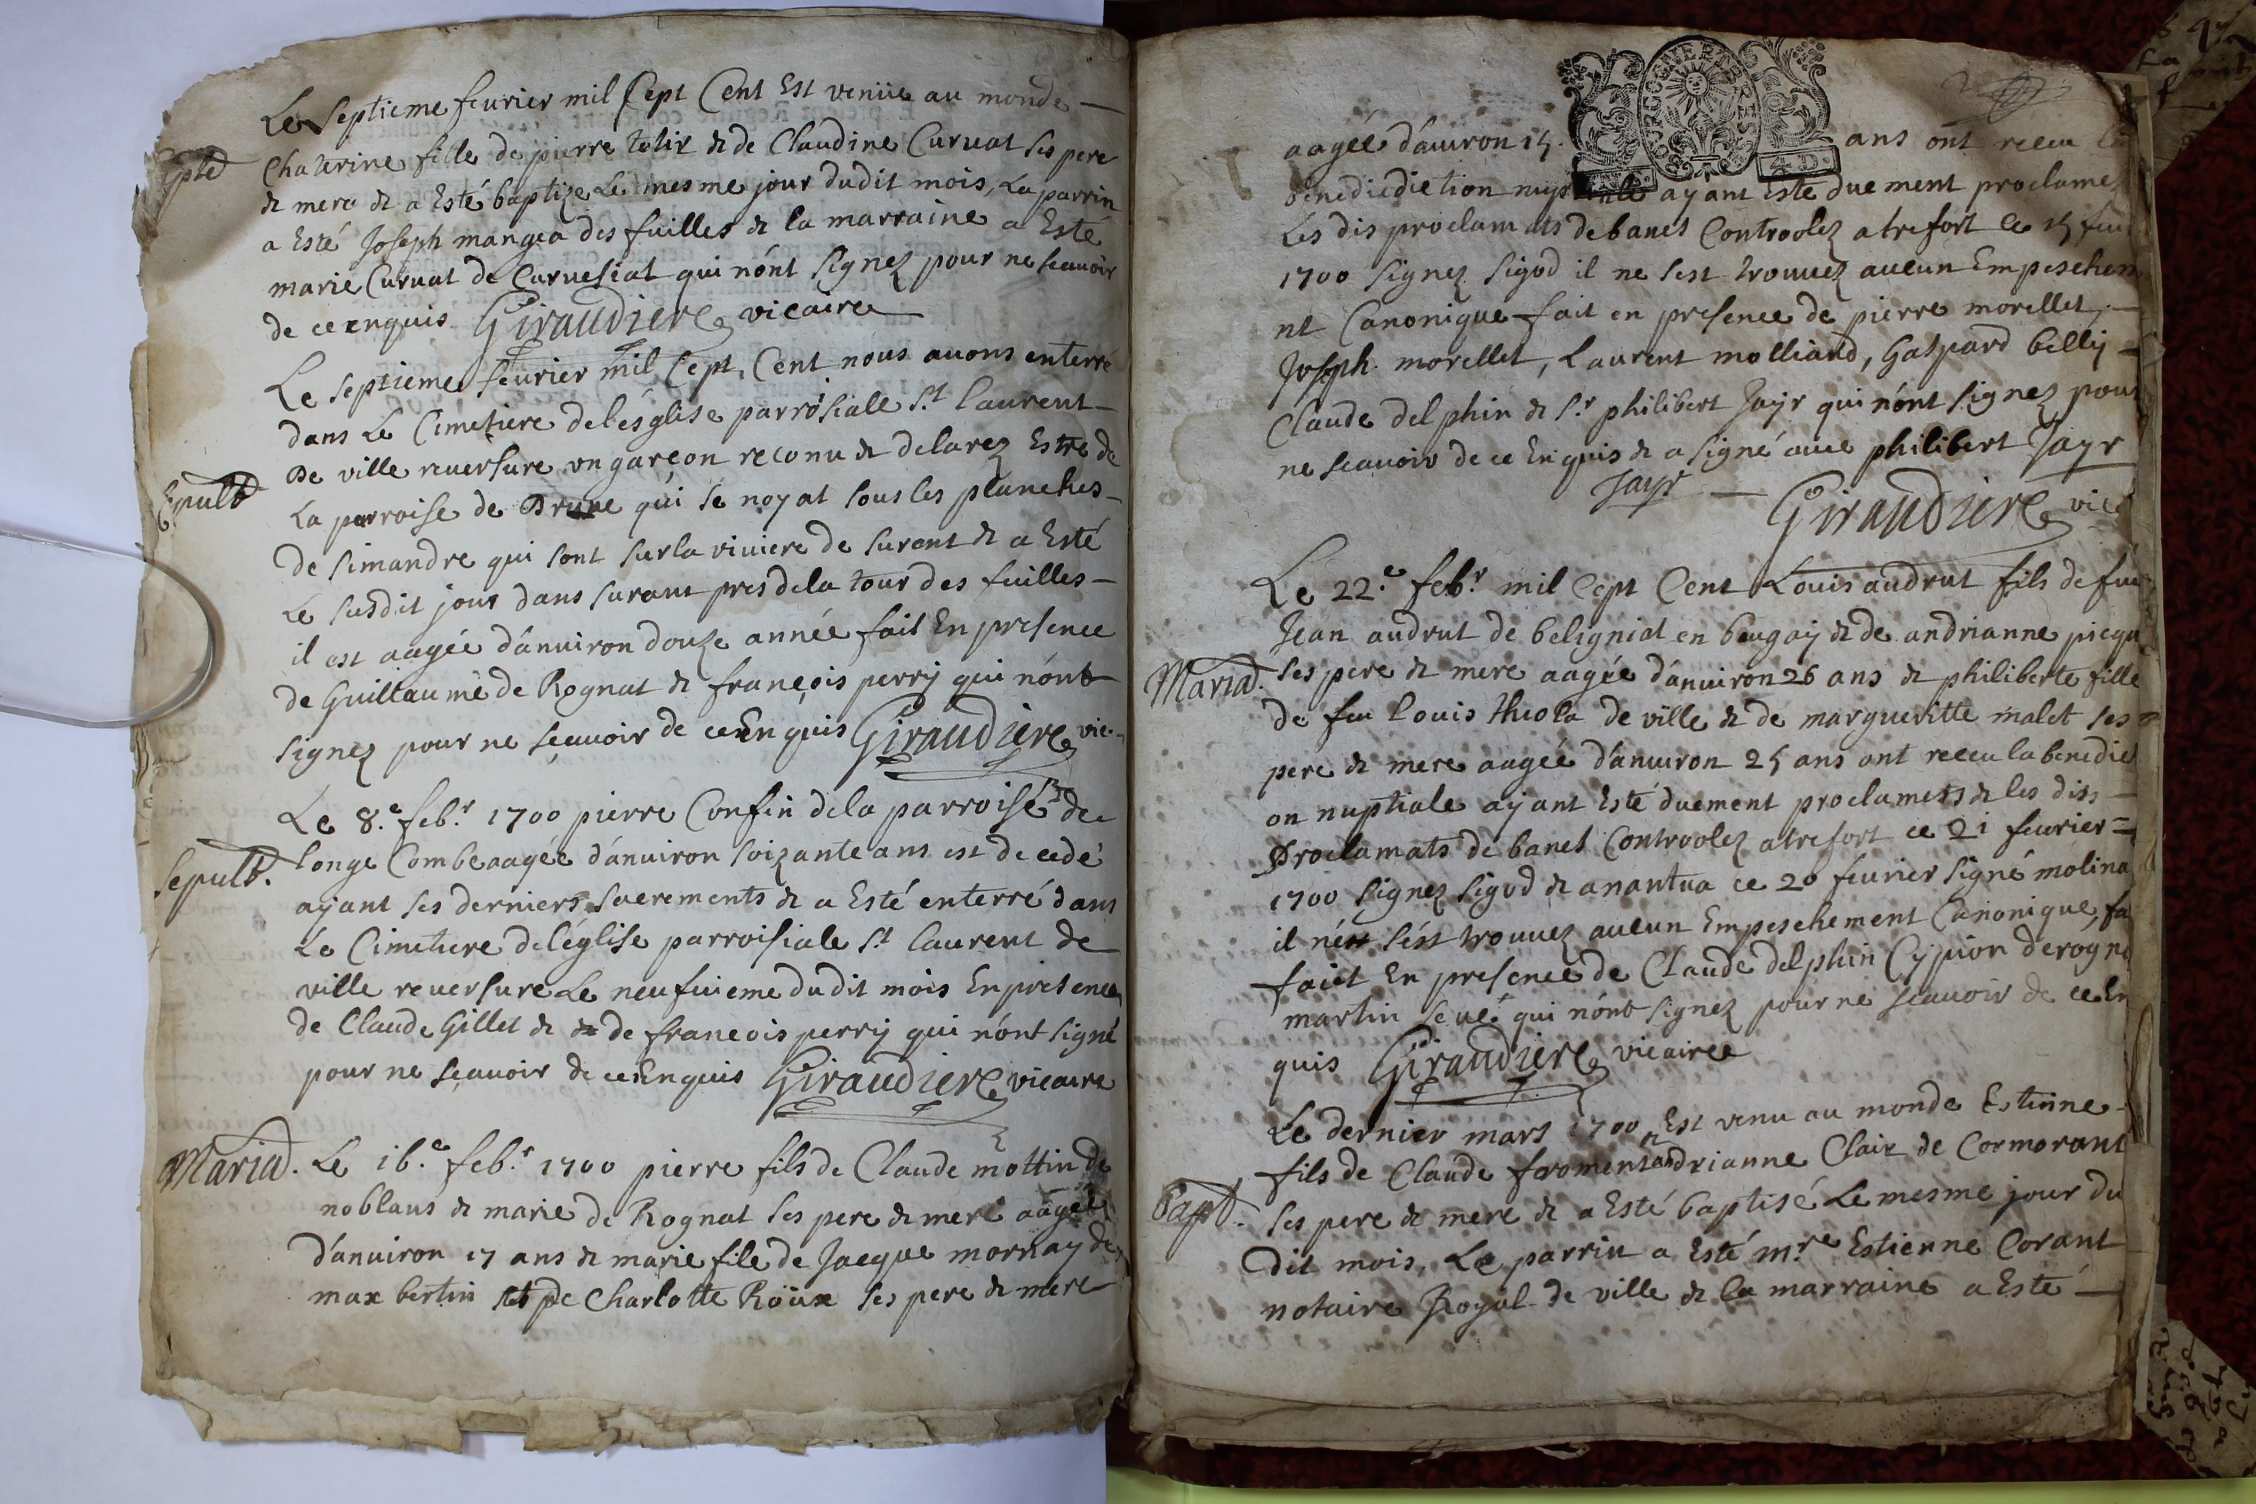 Le septieme feurier mil sept Cent Est venüe au monde
Bapte
Chaterine fille de pierre tolir & de Claudine Curuat ses pere
& mere & a Esté baptize Le mesme jour dudit mois, La parrin
a Esté Joseph mangea des fuilles & la marraine a Esté
marie Curuat de Caruesiat qui nónt signez pour ne scauoir
de ce enquis Giraudiere vicaire
Le septieme feurier mil sept Cent nous auons enterré
dans Le Cimetiere de lésglise parroisiale St laurent
De ville reuersure vn garçon reconu & delarez Estre de
Sepult
La parroise de Drune qui se noyat sous les planches
de simandre qui sont sur la riuiere de surant & a Esté
Le susdit jour dans surant pres de la tour des fuilles
il est aagée dánuiron douze année fait En presence
de Guillaume de Rognat & françois perrÿ qui nónt
signez pour ne sçauoir de ce Enquis Giraudiere vic.
Le 8.e feb.r 1700 pierre Confin de la parroisé de
Sepult.
longe Combe aagée dánuiron soizante ans est decedé
ayant ses derniers sacrements & a Esté enterré dans
Le Cimetiere de léglise parroisiale St laurent de
ville reuersure Le neufuieme dudit mois En presence
de Claude Gillet & de francois perrÿ qui nónt signé
pour ne sçauoir de ce Enquis Giraudiere vicaire
Mariad.
Le 16.e feb.r 1700 pierre fils de Claude mottin de
noblans & marie de Rognat ses pere & mere aagée
dánuiron 17 ans & marie file de Jacque mornay de
max bertin et de Charlotte Roüx ses pere & mere
GEN. DE BOURGOGNE ET BRESSE
4. D.
aagée dánuiron 15. ans ont receu la
benedicdiction nuptiale ayant Esté duement proclamez
Les dis proclamats de bancs Controolez a trefort Ce 15 feur
1700 signez sigod il ne sest trouuez aucun Empeschem
nt Canonique fait en presence de pierre morellet,
Joseph morellet, Laurent molliard, Gaspard billÿ
Claude delphin & s.r philibert Jaÿr qui nónt signez pour
ne scauoir de ce Enquis & a signé auec philibert Jayr
Jayr
Giraudiere vic
Le 22.e feb.r mil sept Cent Louis audrut fils de feu
Jean audrut de belignat en beugaÿ & de andrianne picqu
Mariad.
ses pere & mere aagée dánuiron 26 ans & philiberte fille
de feu Louis thiola de ville & de margueritte malet ses
pere & mere aagée dánuiron 25 ans ont receu la benedicti
on nuptiale ayant Esté duement proclamets & les dis
Proclamats de bancs Controolez a trefort ce 21 feurier
1700 signez sigod & a nantua ce 20 féurier signé molina
il nést sést trouuez aucun Empeschement Canonique, fa
faict En presence de Claude delphin Cypion de rogna
martin seué qui nónt signez pour ne scauoir de ce En
quis Giraudiere vicaire
Le dernier mars 1700 Est venu au monde Estienne
fils de Claude froment & andrianne Clair de Cormorant
Bapt.
ses pere & mere & a Esté baptisé Le mesme jour du
dit mois, Le parrin a Esté m.re Estienne Corant
notaire Royal de ville & la marraine a Esté